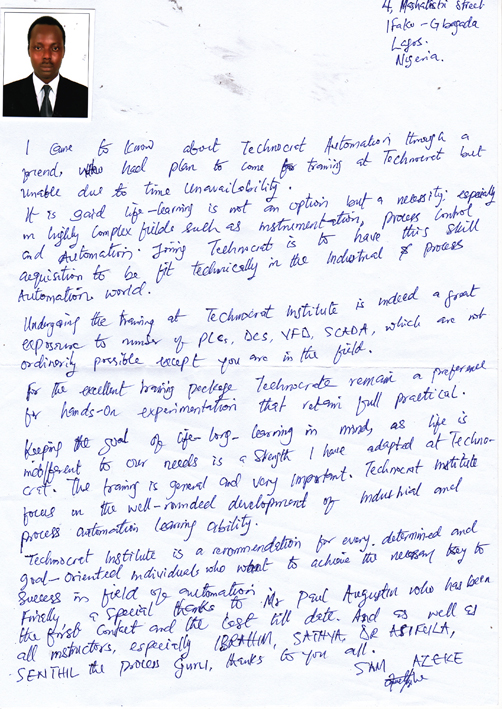 4, Street
Ifako - Gbagada
Lagos.
Nigeria.
I came to know about Technocrat Automation through a
friend, who had plan to come for training at Technocrat but
unable due to time unavailability.
It is said life-learning is not an option but a necessity. especially
in highly complex fields such as instrumentation, process control
and Automation. Joing Technocrat is to have this skill
acquisition to be fit technically in the Industrial & process
Automation world.
Undergoing the training at Technocrat Institute is indeed a great
exposure to number of PLCs, DCS, VFD, SCADA, which are not
ordinarily possible except you are in the field.
For the excellent training package Technocrate remain a preference
for hands-on experimentation that retain full practical.
Keeping the goal of life-long-learning in mind, as life is
indifferent to our needs is a strength I have adapted at Techno-
crat. The traning is general and very important. Technocrat Institute
focus on the well-rounded development of Industrial and
process automation learning ability.
Technocrat Institute is a recommendation for every determined and
goal-oriented individuals who want to achieve the necessary key to
success in field of automation.
Finally, a special thanks to Mr Paul Augustin who has been
the first contact and the best till date. And as well as
all instructors, especially IBRAHIM, SATHYA, DR ASIFULA,
SENTHIL the process Guru, thanks to you all.
SAM AZEKE